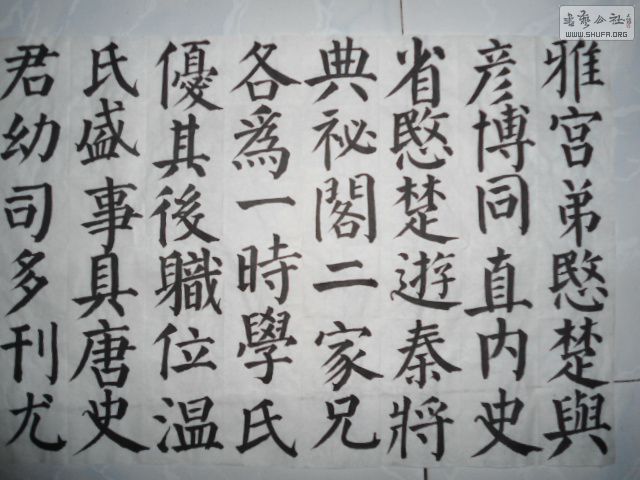 雅宮弟愍楚與
彦博同直內史
省愍楚遊秦將
典祕閣二家兄
各為一時學氏
優其後職位溫
氏盛事具唐史
君幼司多刊尤
书艺公社
WWW.SHUFA.ORG